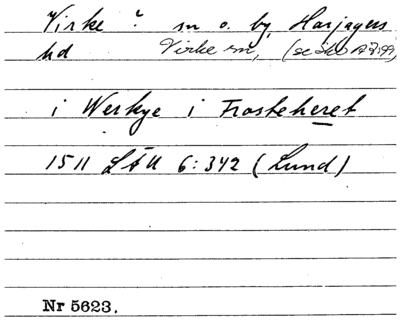 Virke ? sn o. by, Harjagers
hd Virke sn, (se Sko A 7:99)
i Werkye i Frosteheret
1511 LÄU 6:342 (Lund)
Nr 5623.